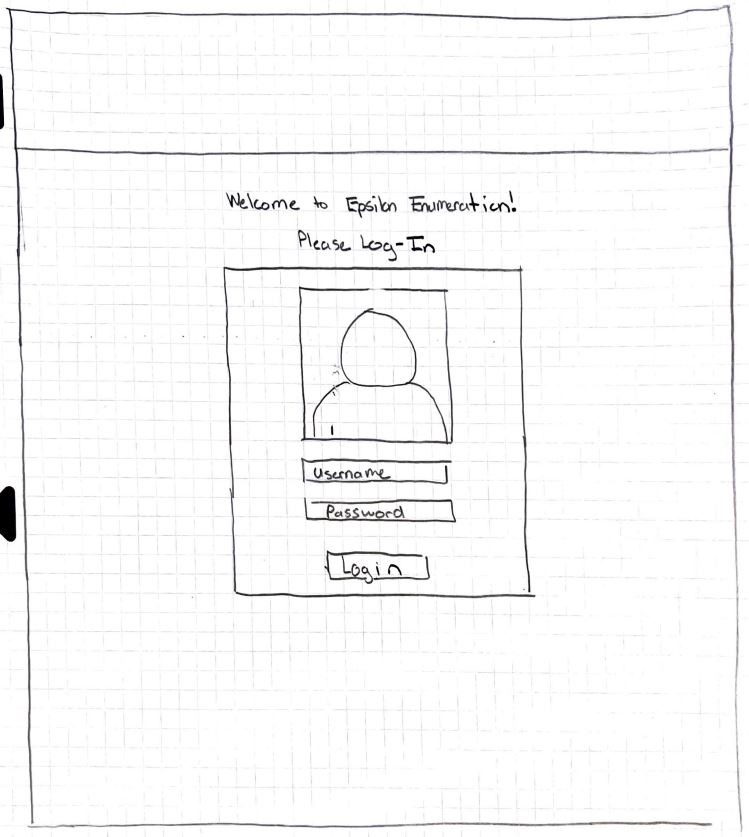 Welcome to Epsilon Enumeration!
Please Log-In
Username
Password
Login